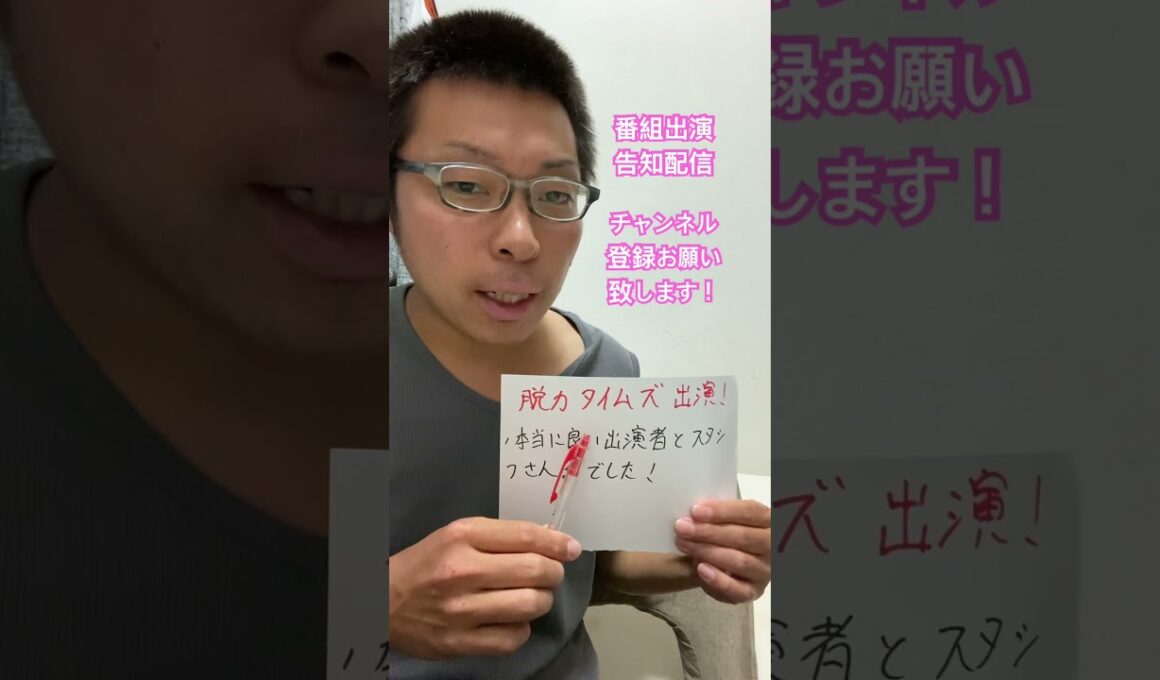 番組出演
告知配信
チャンネル
登録お願い
致します！
脱力タイムズ 出演！
・本当に良い出演者とスタッ
フさん でした！
録お願い
します！
ズ 出演！
者とスタッ